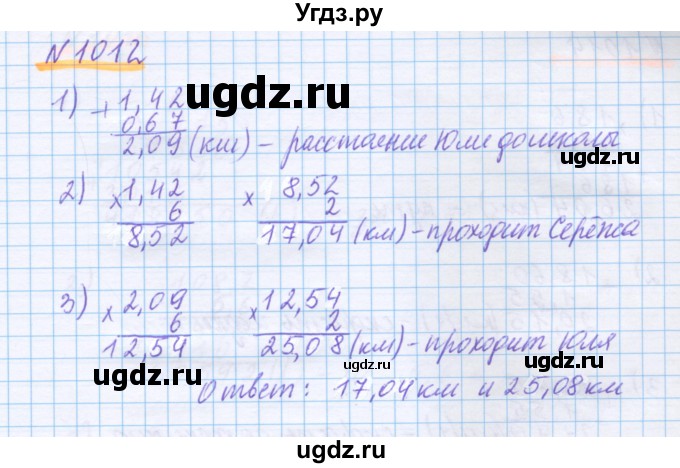 Угдз.ру
N 1012
1) + 1,42
0,67
2,09 (км) – расстояние Юли до школы
2) × 1,42 × 8,52
6 2
8,52 17,04 (км) – проходит Серёжа
3) × 2,09 × 12,54
6 2
12,54 25,08 (км) – проходит Юля
Ответ: 17,04 км и 25,08 км
ugdz.ru
ugdz.ru
ugdz.ru
ugdz.ru
ugdz.ru
ugdz.ru
ugdz.ru
ugdz.ru
ugdz.ru